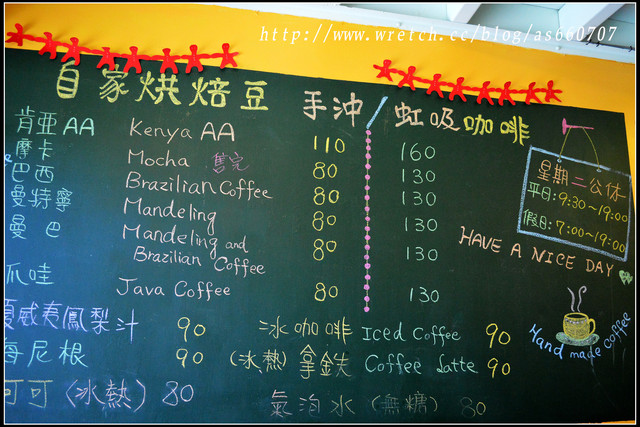 http://www.wretch.cc/blog/as660707
自家烘焙豆 手沖 虹吸咖啡
肯亞AA Kenya AA 110 160
摩卡 Mocha 售完 80 130
巴西 Brazilian Coffee 80 130
曼特寧 Mandeling 80 130
曼巴 Mandeling and Brazilian Coffee 80 130
爪哇 Java Coffee 80 130
夏威夷鳳梨汁 90 冰咖啡 Iced Coffee 90
海尼根 90 (冰熱) 拿鐵 Coffee Latte 90
可可 (冰熱) 80 氣泡水 (無糖) 80
星期二公休
平日: 9:30~19:00
假日: 7:00~19:00
HAVE A NICE DAY
Hand made coffee